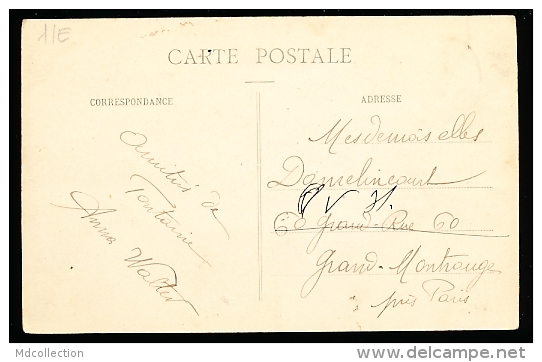 11E
CARTE POSTALE
CORRESPONDANCE
ADRESSE
Amitiés de
Fontaine
Anna Walter
Mesdemoiselles
Damelincourt
60 Grand-Rue 60
Grand-Montrouge
près Paris
Mdcollection
http://www.delcampe.net